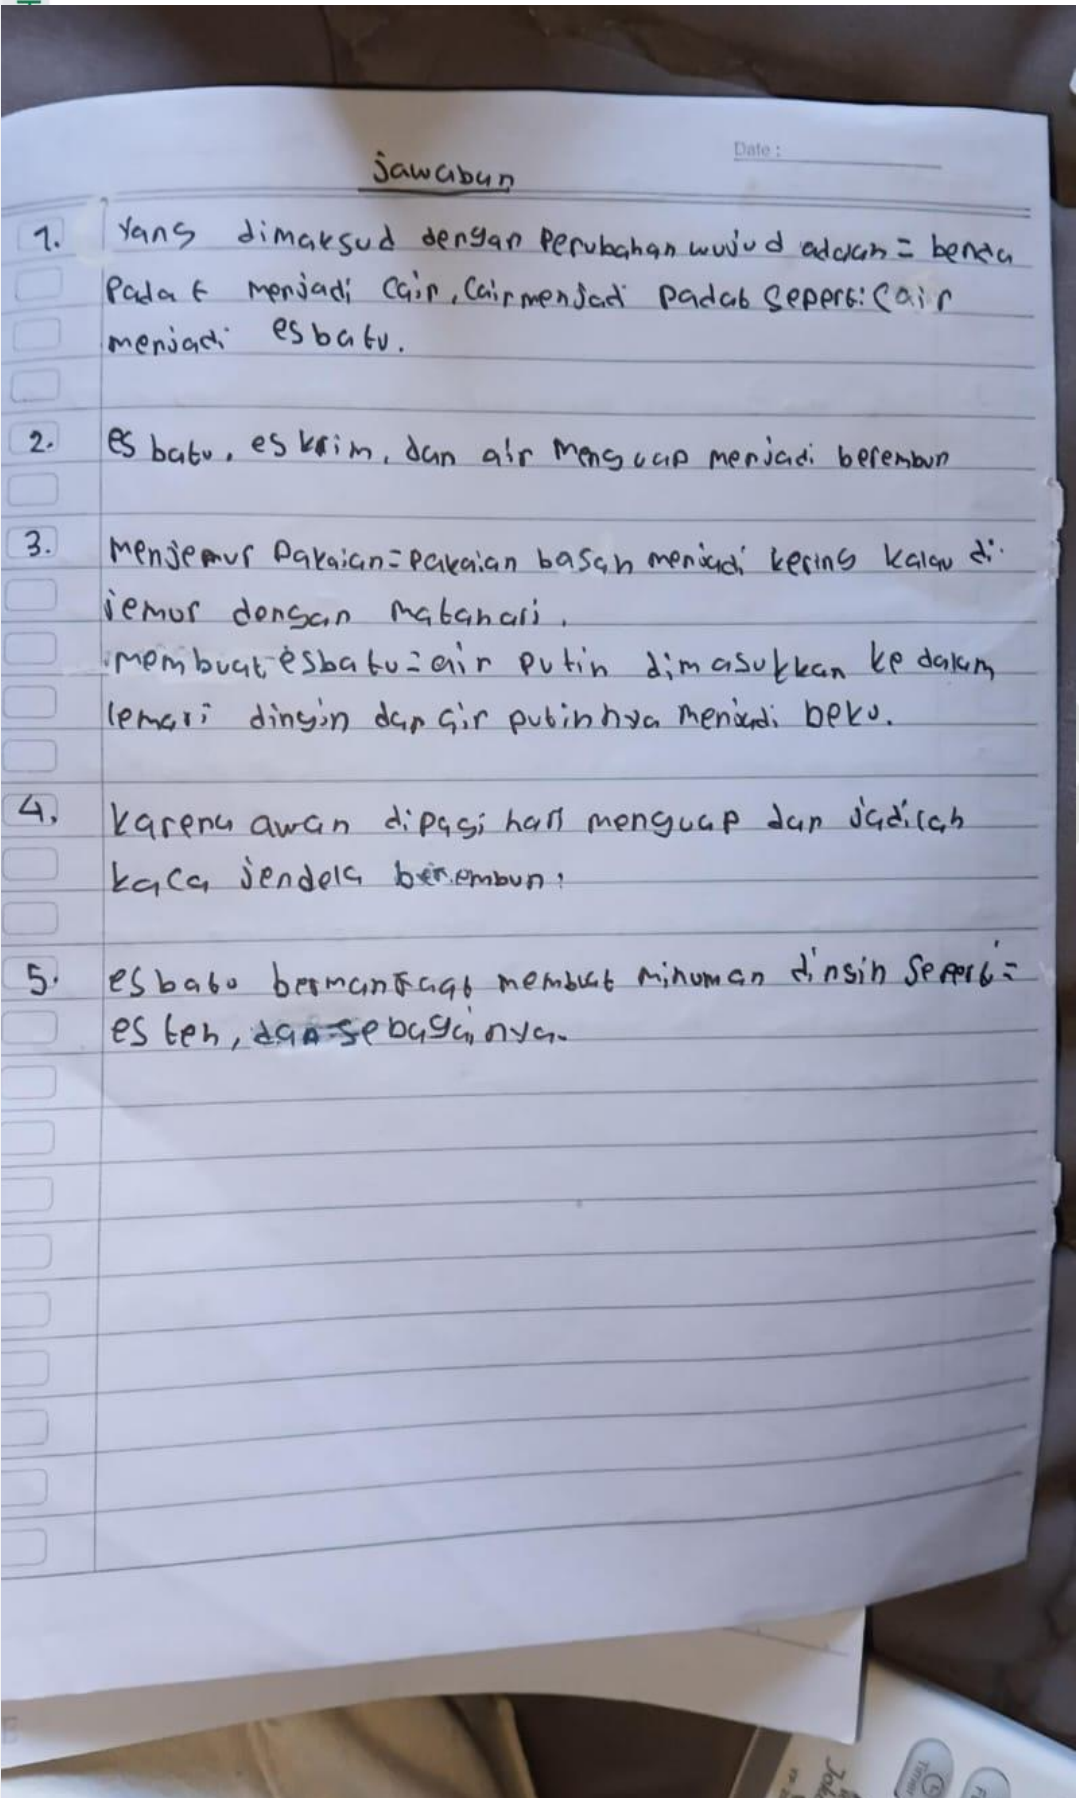 Date :
jawaban
1. Yang dimaksud dengan Perubahan wujud adalah = benda
Padat menjadi Cair, Cair menjadi padat seperti Cair
menjadi es batu.
2. es batu, es krim, dan air menguap menjadi berembun
3. Menjemur Pakaian = Pakaian basah menjadi kering kalau di
jemur dengan matahari.
membuat es batu = air putih dimasukkan ke dalam
lemari dingin dan air putihnya menjadi beku.
4. karena awan dipagi hari menguap dan jadilah
kaca jendela berembun.
5. es batu bermanfaat membuat minuman dinsin seperti =
es teh, dan sebagainya.
Timer